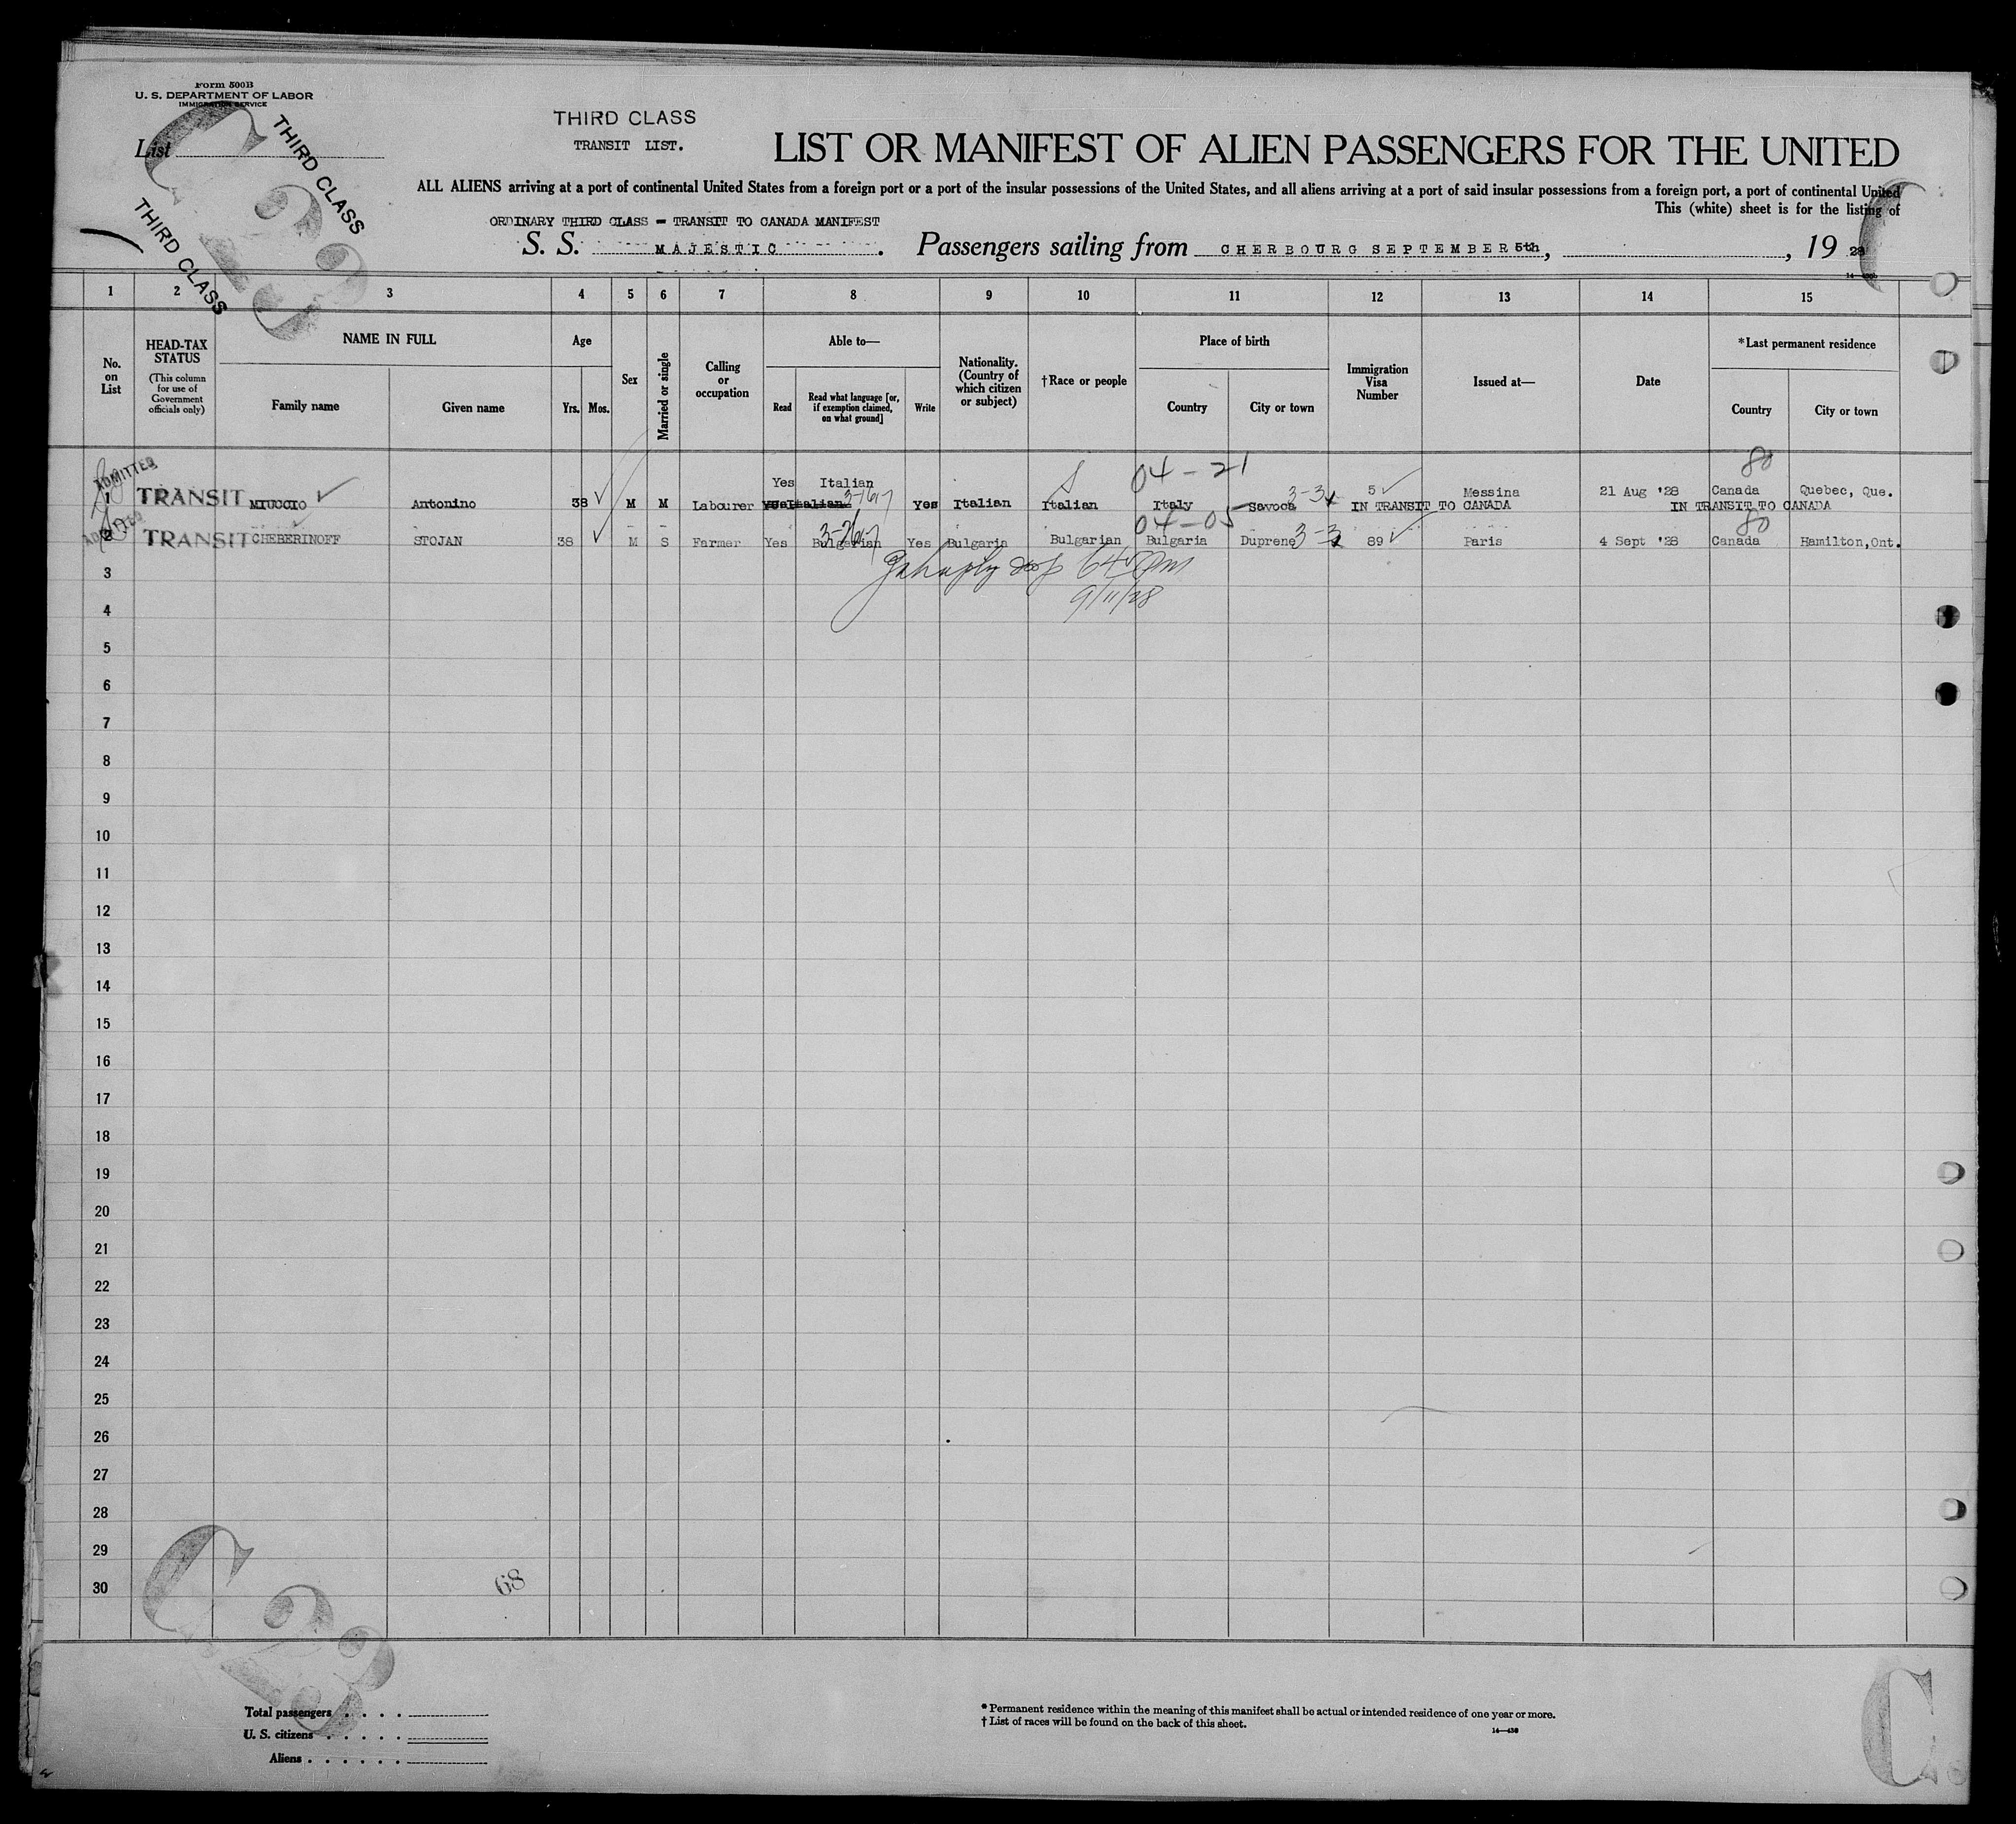 Form 500B
U. S. DEPARTMENT OF LABOR
IMMIGRATION SERVICE
List
THIRD CLASS
THIRD CLASS
C 23
THIRD CLASS
TRANSIT LIST.
LIST OR MANIFEST OF ALIEN PASSENGERS FOR THE UNITED
ALL ALIENS arriving at a port of continental United States from a foreign port or a port of the insular possessions of the United States, and all aliens arriving at a port of said insular possessions from a foreign port, a port of continental United
This (white) sheet is for the listing of
ORDINARY THIRD CLASS - TRANSIT TO CANADA MANIFEST
S. S. MAJESTIC. Passengers sailing from CHERBOURG SEPTEMBER 5th, , 19 28
1 2 3 4 5 6 7 8 9 10 11 12 13 14 15
No. on List
HEAD-TAX STATUS
(This column for use of Government officials only)
NAME IN FULL
Family name
Given name
Age
Yrs. Mos.
Sex
Married or single
Calling or occupation
Able to—
Read
Read what language [or, if exemption claimed, on what ground]
Write
Nationality. (Country of which citizen or subject)
†Race or people
Place of birth
Country
City or town
Immigration Visa Number
Issued at—
Date
*Last permanent residence
Country
City or town
ADMITTED
04-21
80
Yes Italian
1 TRANSIT MIUCCIO Antonino 38 M M Labourer Yes Italian Yes Italian Italian Italy Savoca 5 Messina 21 Aug '28 Canada Quebec, Que.
IN TRANSIT TO CANADA IN TRANSIT TO CANADA
ADMITTED
04-05
80
2 TRANSIT CHEBERINOFF STOJAN 38 M S Farmer Yes Bulgarian Yes Bulgaria Bulgarian Bulgaria Duprene 89 Paris 4 Sept '28 Canada Hamilton,Ont.
9/11/28
3
4
5
6
7
8
9
10
11
12
13
14
15
16
17
18
19
20
21
22
23
24
25
26
27
28
29
30
68
C 23
Total passengers
U. S. citizens
Aliens
* Permanent residence within the meaning of this manifest shall be actual or intended residence of one year or more.
† List of races will be found on the back of this sheet.
14—436
C